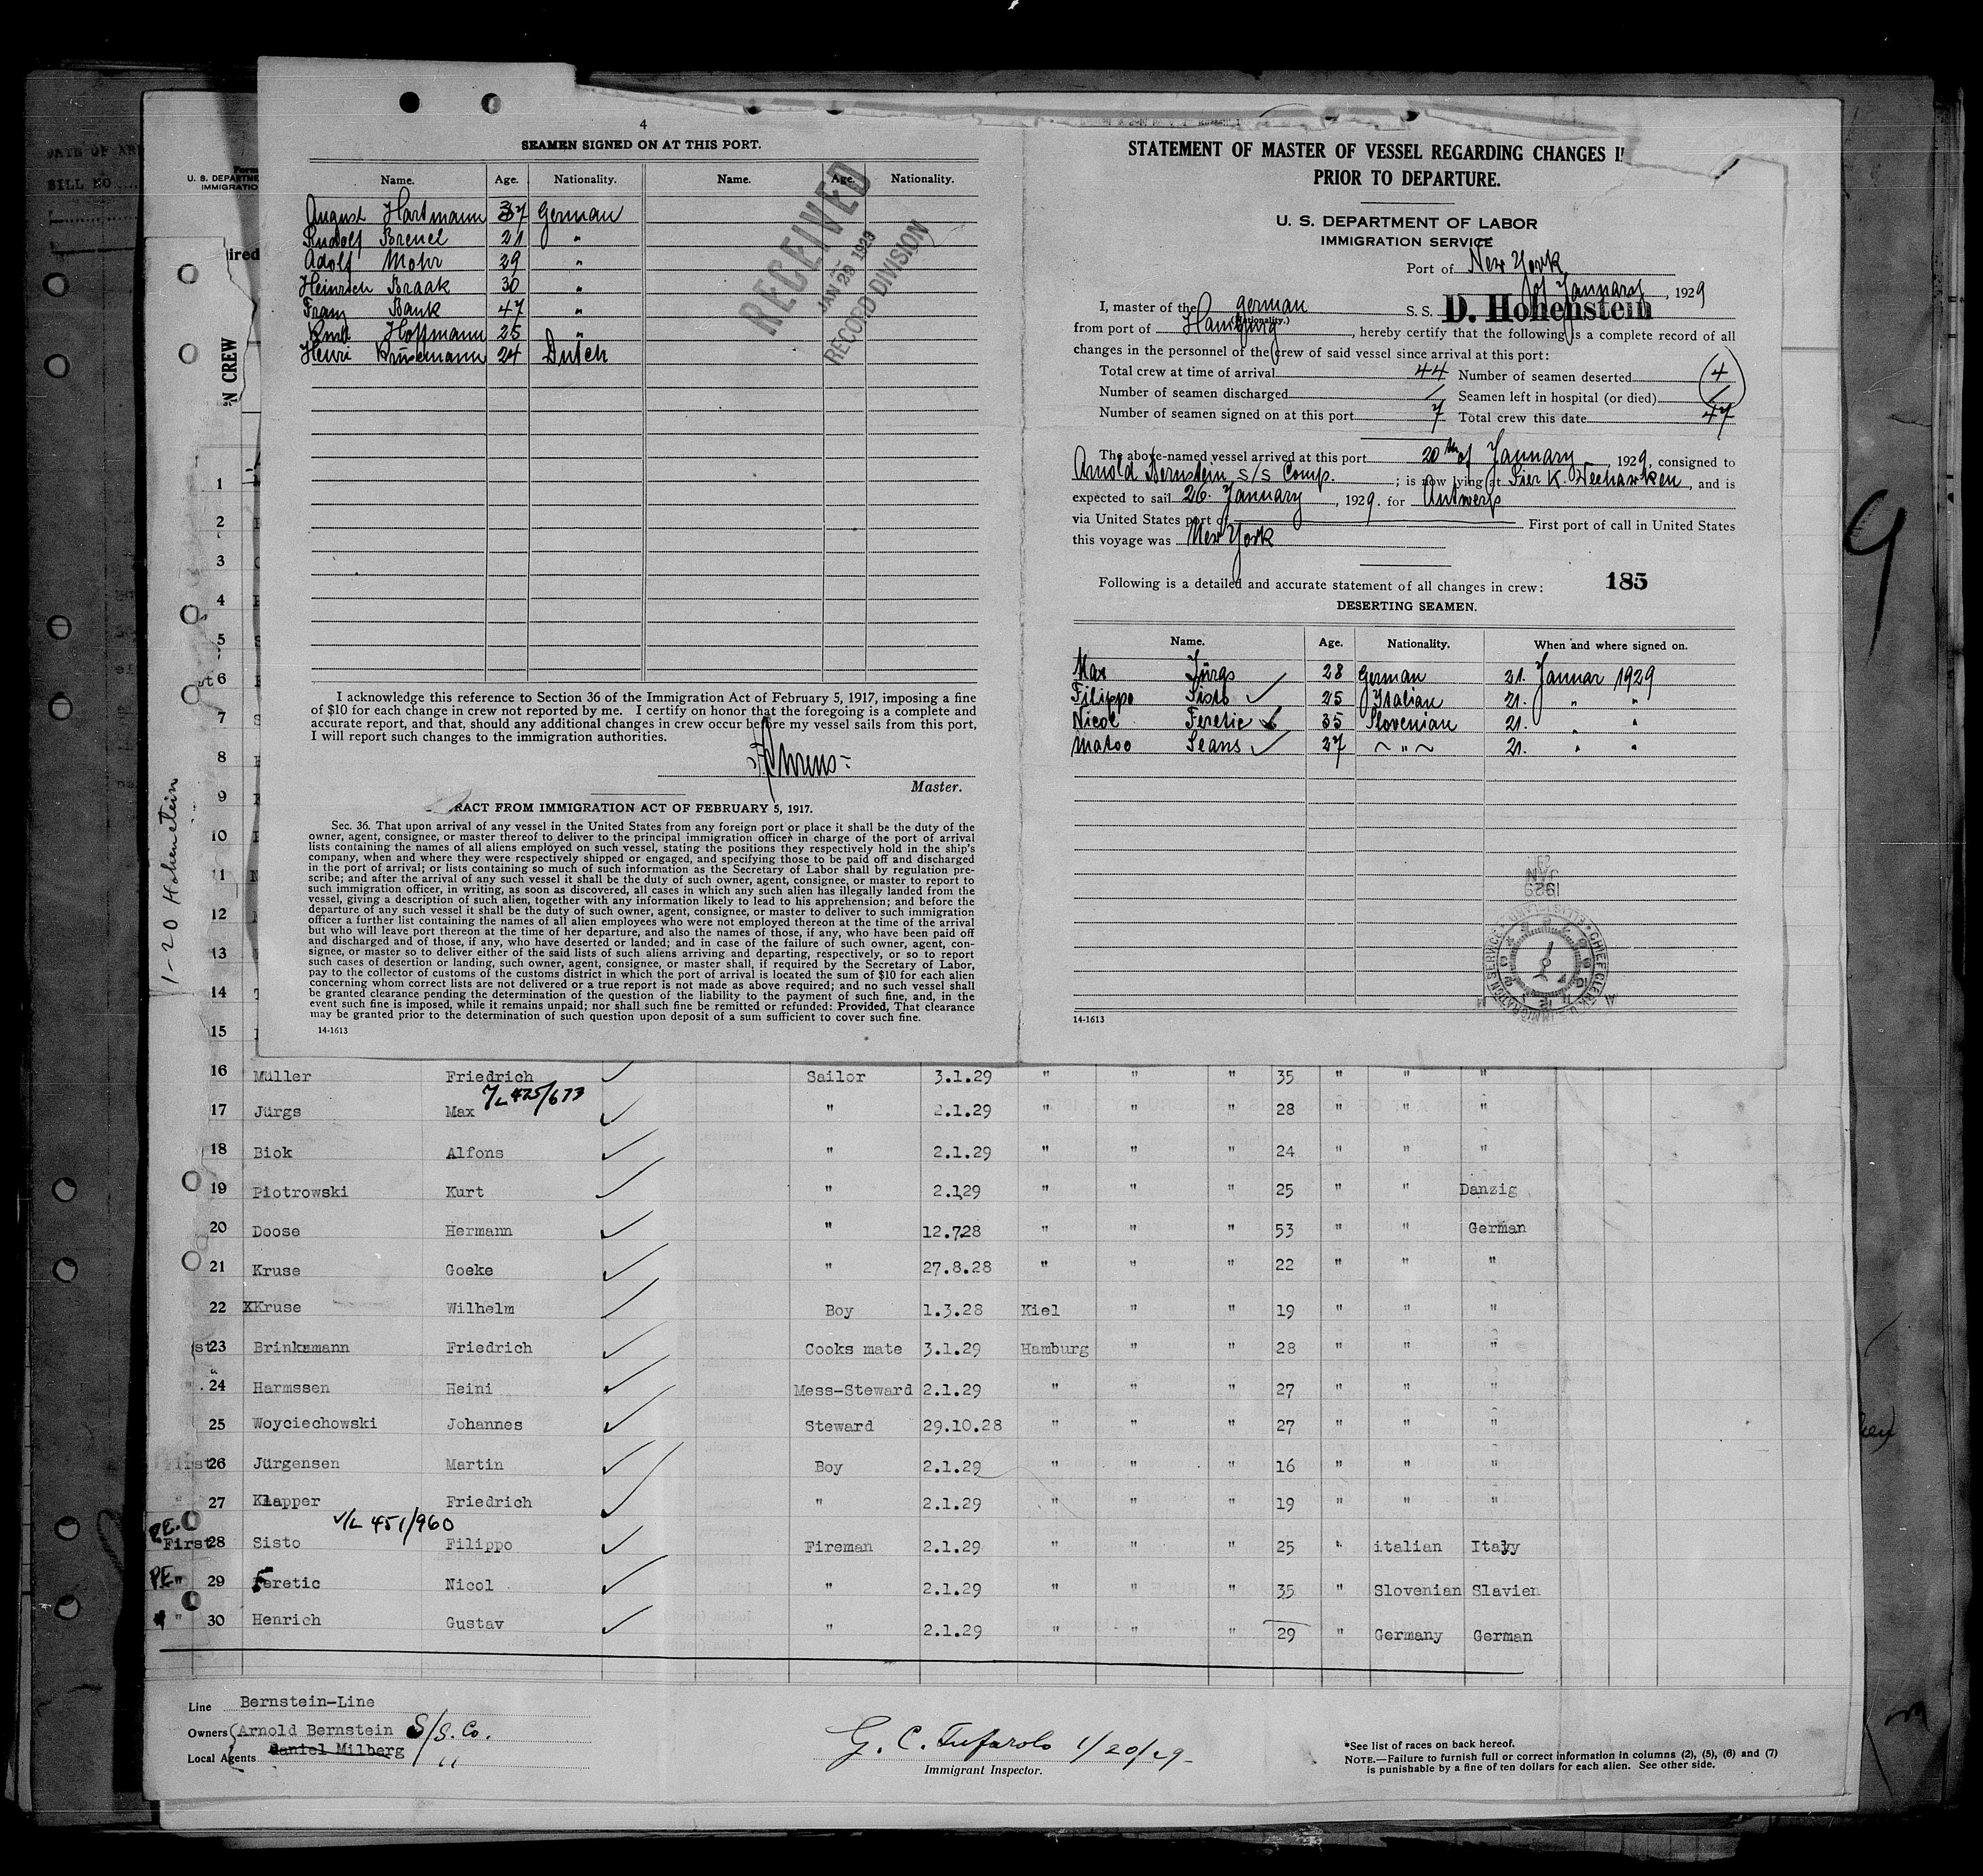 4
SEAMEN SIGNED ON AT THIS PORT.
Name. Age. Nationality. Name. Age. Nationality.
August Hartmann 37 German
Rudolf Breuel 21 "
Adolf Mohr 29 "
Heinrich Braak 30 "
Franz Bank 47 "
Hoffmann 25 "
Henri 24 Dutch
RECEIVED
JAN 29 1929
RECORD DIVISION
I acknowledge this reference to Section 36 of the Immigration Act of February 5, 1917, imposing a fine
of $10 for each change in crew not reported by me. I certify on honor that the foregoing is a complete and
accurate report, and that, should any additional changes in crew occur before my vessel sails from this port,
I will report such changes to the immigration authorities.
Master.
RACT FROM IMMIGRATION ACT OF FEBRUARY 5, 1917.
Sec. 36. That upon arrival of any vessel in the United States from any foreign port or place it shall be the duty of the
owner, agent, consignee, or master thereof to deliver to the principal immigration officer in charge of the port of arrival
lists containing the names of all aliens employed on such vessel, stating the positions they respectively hold in the ship's
company, when and where they were respectively shipped or engaged, and specifying those to be paid off and discharged
in the port of arrival; or lists containing so much of such information as the Secretary of Labor shall by regulation pre-
scribe; and after the arrival of any such vessel it shall be the duty of such owner, agent, consignee, or master to report to
such immigration officer, in writing, as soon as discovered, all cases in which any such alien has illegally landed from the
vessel, giving a description of such alien, together with any information likely to lead to his apprehension; and before the
departure of any such vessel it shall be the duty of such owner, agent, consignee, or master to deliver to such immigration
officer a further list containing the names of all alien employees who were not employed thereon at the time of the arrival
but who will leave port thereon at the time of her departure, and also the names of those, if any, who have been paid off
and discharged and of those, if any, who have deserted or landed; and in case of the failure of such owner, agent, con-
signee, or master so to deliver either of the said lists of such aliens arriving and departing, respectively, or so to report
such cases of desertion or landing, such owner, agent, consignee, or master shall, if required by the Secretary of Labor,
pay to the collector of customs of the customs district in which the port of arrival is located the sum of $10 for each alien
concerning whom correct lists are not delivered or a true report is not made as above required; and no such vessel shall
be granted clearance pending the determination of the question of the liability to the payment of such fine, and, in the
event such fine is imposed, while it remains unpaid; nor shall such fine be remitted or refunded: Provided, That clearance
may be granted prior to the determination of such question upon deposit of a sum sufficient to cover such fine.
14-1613
STATEMENT OF MASTER OF VESSEL REGARDING CHANGES I
PRIOR TO DEPARTURE.
U. S. DEPARTMENT OF LABOR
IMMIGRATION SERVICE
Port of New York
of January, 1929
I, master of the German S. S. D. Hohenstein
(Nationality.)
from port of Hamburg, hereby certify that the following is a complete record of all
changes in the personnel of the crew of said vessel since arrival at this port:
Total crew at time of arrival 44 Number of seamen deserted 4
Number of seamen discharged / Seamen left in hospital (or died) /
Number of seamen signed on at this port 7 Total crew this date 47
The above-named vessel arrived at this port 20th of January, 1929, consigned to
Arnold Bernstein S/S Comp. ; is now lying at Pier K. Weehawken, and is
expected to sail 26. January, 1929. for Antwerp
via United States port of First port of call in United States
this voyage was New York
Following is a detailed and accurate statement of all changes in crew: 185
DESERTING SEAMEN.
Name. Age. Nationality. When and where signed on.
Max Jürgs 28 German 21. Januar 1929
Filippo Sisto 25 Italian 21. " "
Nicol Feretic 35 Slovenian 21. " "
Matoo Seans 27 " 21. " "
JAN
1929
CHIEF CLERK U.S. IMMIGRATION SERVICE ELLIS ISLAND
14-1613
Form
U. S. DEPARTME
IMMIGRATIO
DATE OF AR
BILL NO
ired
N CREW
1-20 Hohenstein
9
1
2
3
4
5
st 6
7
8
9
10
11
12
13
14
15
16 Müller Friedrich Sailor 3.1.29 " " " 35 " " "
V/L 425/673
17 Jürgs Max " 2.1.29 " " " 28 " " "
18 Biok Alfons " 2.1.29 " " " 24 " " "
19 Piotrowski Kurt " 2.1.29 " " " 25 " " Danzig
20 Doose Hermann " 12.7.28 " " " 53 " " German
21 Kruse Goeke " 27.8.28 " " " 22 " " "
22 XKruse Wilhelm Boy 1.3.28 Kiel " " 19 " " "
st 23 Brinkmann Friedrich Cooks mate 3.1.29 Hamburg " " 28 " " "
24 Harmssen Heini Mess-Steward 2.1.29 " " " 27 " " "
25 Woyciechowski Johannes Steward 29.10.28 " " " 27 " " "
First 26 Jürgensen Martin Boy 2.1.29 " " " 16 " " "
" 27 Klapper Friedrich " 2.1.29 " " " 19 " " "
V/L 451/960
P.E. First 28 Sisto Filippo Fireman 2.1.29 " " " 25 " italian Italy
P.E. " 29 Feretic Nicol " 2.1.29 " " " 35 " Slovenian Slavien
" 30 Henrich Gustav " 2.1.29 " " " 29 " Germany German
Line Bernstein-Line
Owners Arnold Bernstein S/S. Co.
Local Agents Daniel Milberg "
G. C. Tufarolo 1/20/29
Immigrant Inspector.
*See list of races on back hereof.
NOTE.—Failure to furnish full or correct information in columns (2), (5), (6) and (7)
is punishable by a fine of ten dollars for each alien. See other side.